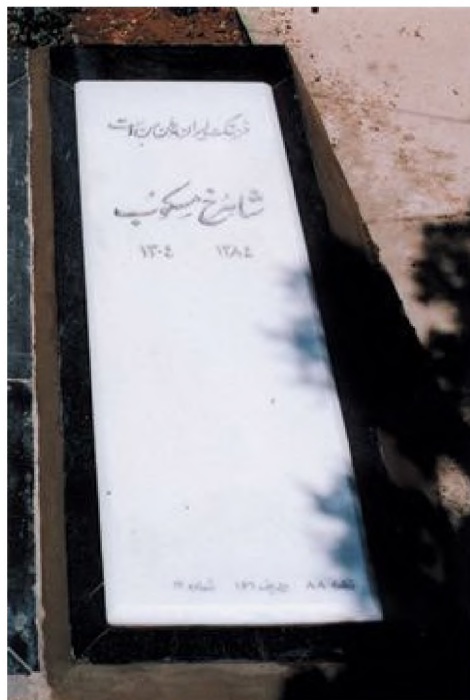 فرهنگ ایران وطن من است
شاهرخ مسکوب
۱۳۰۴ ۱۳۸۴
قطعه ۸۸ ردیف ۱۴۶ شماره